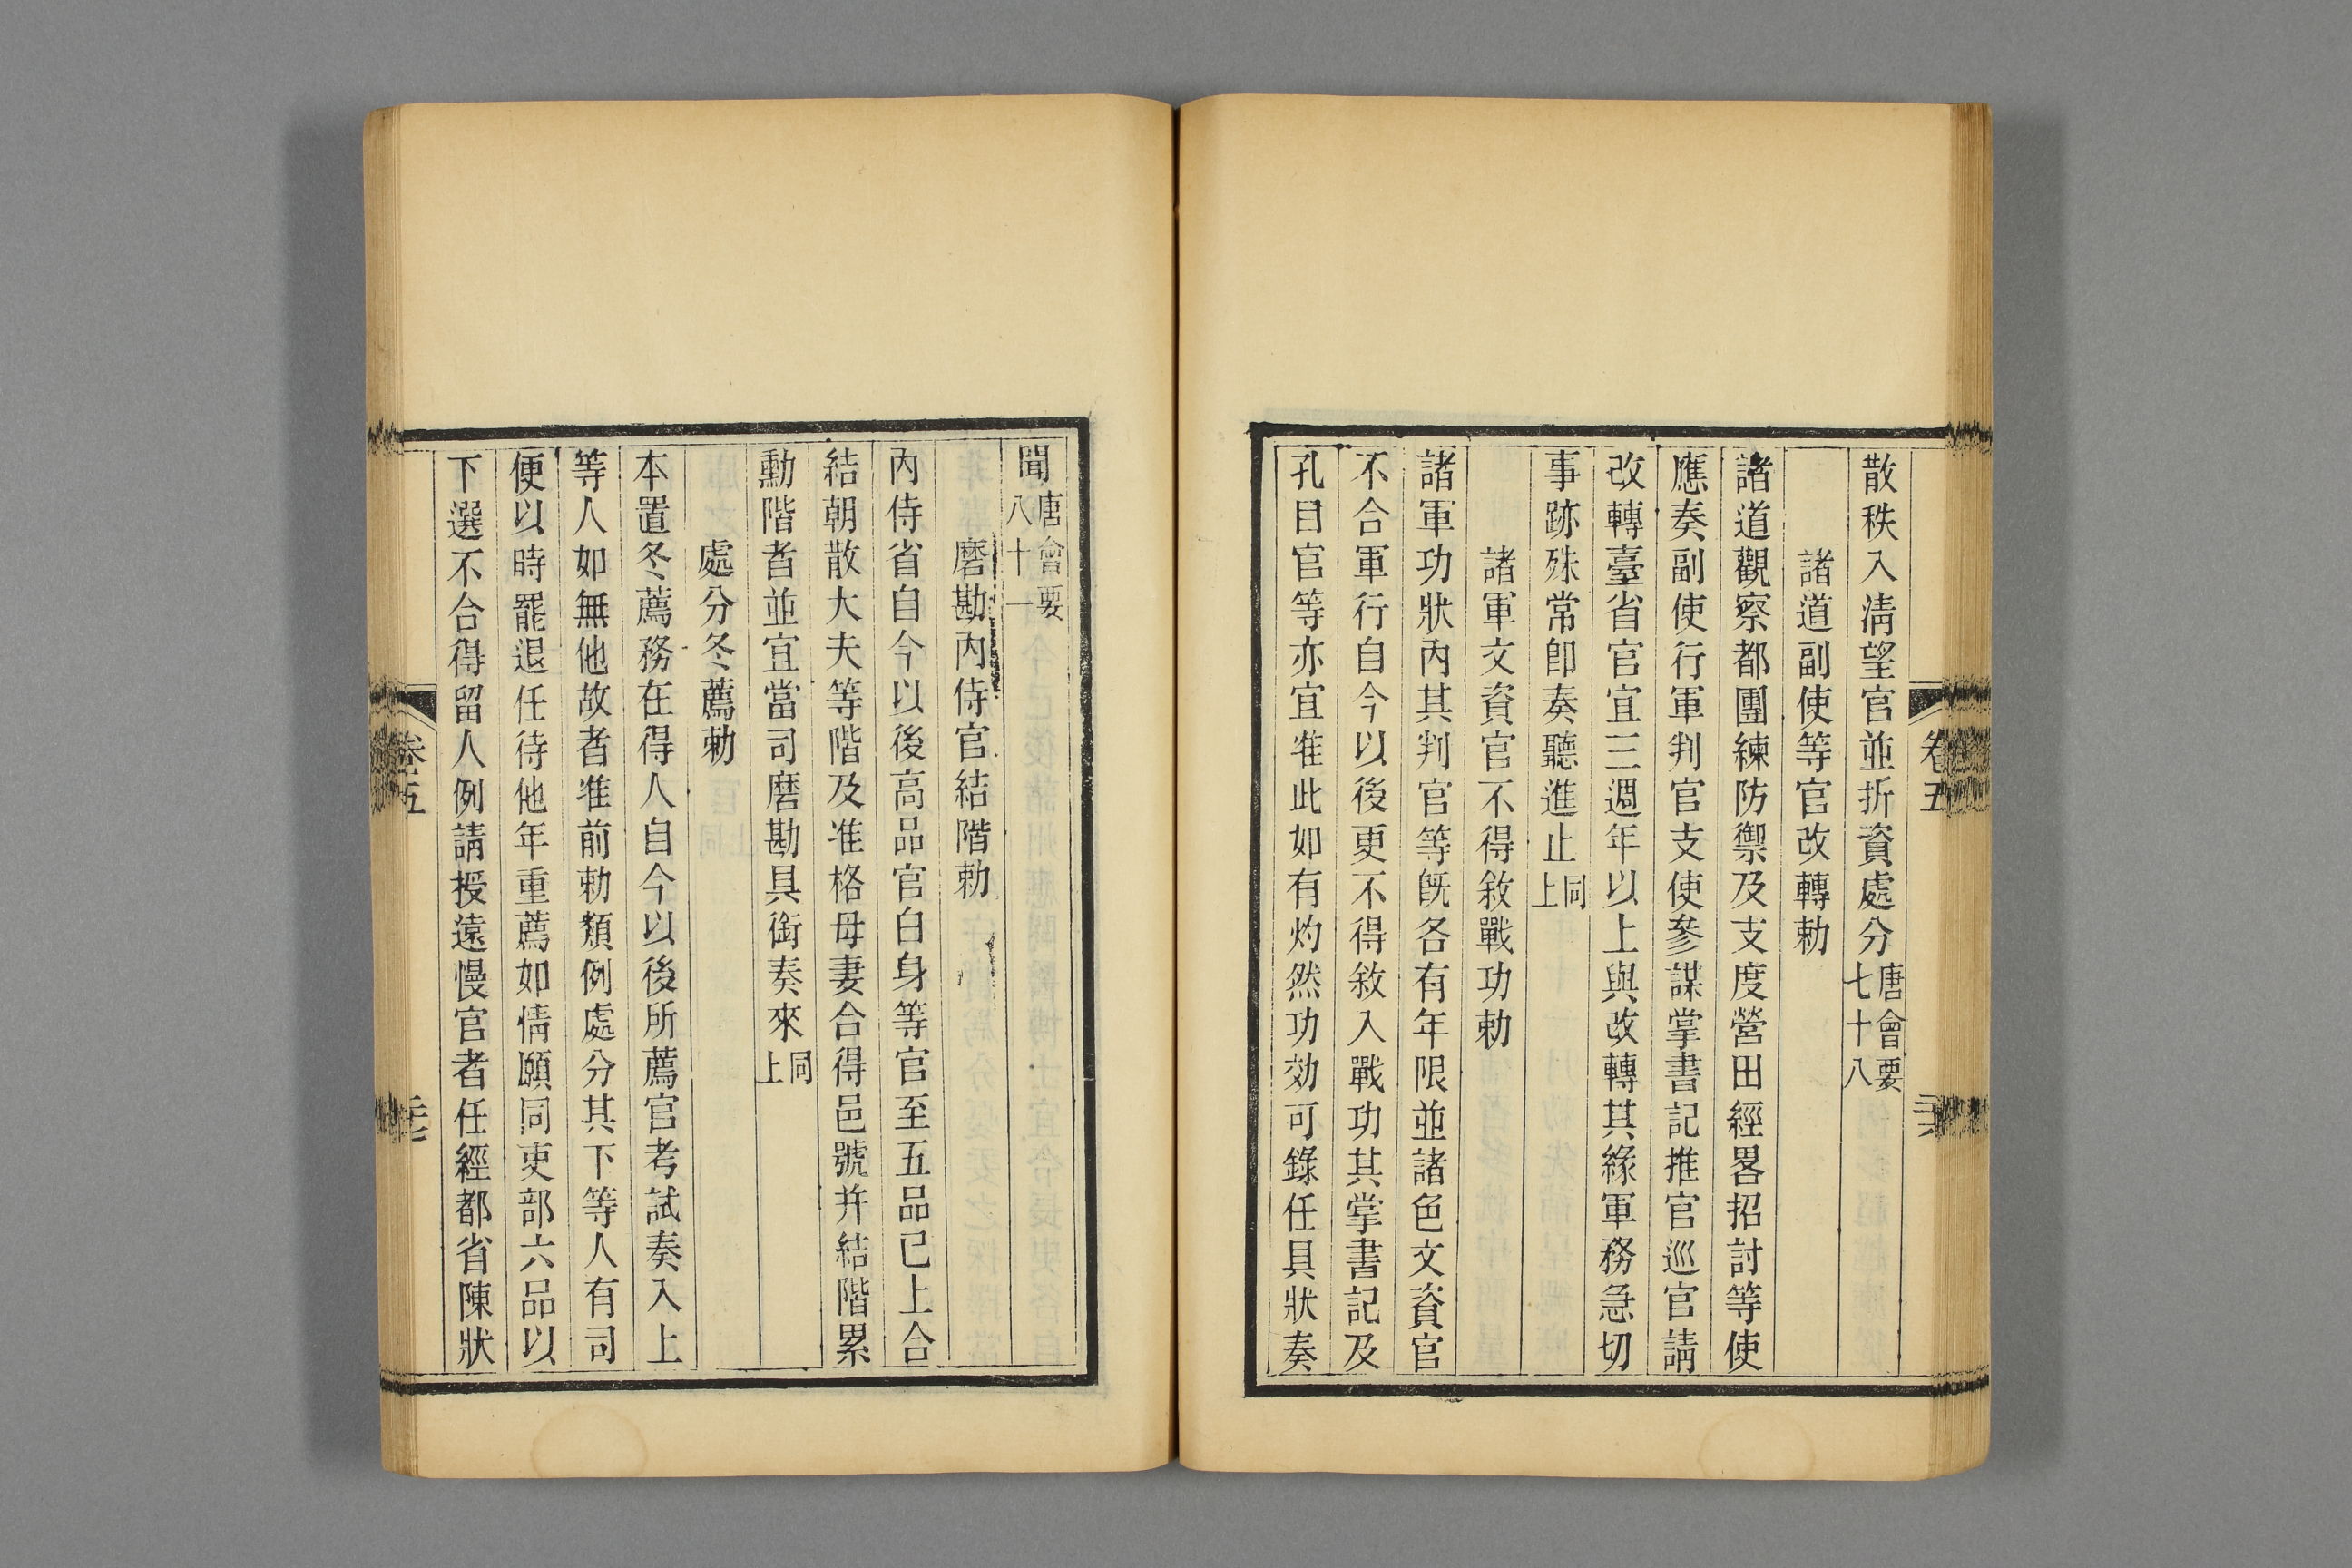 散秩入淸望官並折資處分唐會要七十八
諸道副使等官改轉勅
諸道觀察都團練防禦及支度營田經畧招討等使
應奏副使行軍判官支使參謀掌書記推官巡官請
改轉臺省官宜三週年以上與改轉其緣軍務急切
事跡殊常卽奏聽進止同上
諸軍文資官不得敘戰功勅
諸軍功狀內其判官等旣各有年限並諸色文資官
不合軍行自今以後更不得敘入戰功其掌書記及
孔目官等亦宜准此如有灼然功効可錄任具狀奏
卷五
聞唐會要八十一
磨勘內侍官結階勅
內侍省自今以後高品官白身等官至五品已上合
結朝散大夫等階及准格母妻合得邑號幷結階累
勳階者並宜當司磨勘具銜奏來同上
處分冬薦勅
本置冬薦務在得人自今以後所薦官考試奏入上
等人如無他故者准前勅類例處分其下等人有司
便以時罷退任待他年重薦如情願同吏部六品以
下選不合得留人例請授遠慢官者任經都省陳狀
卷五